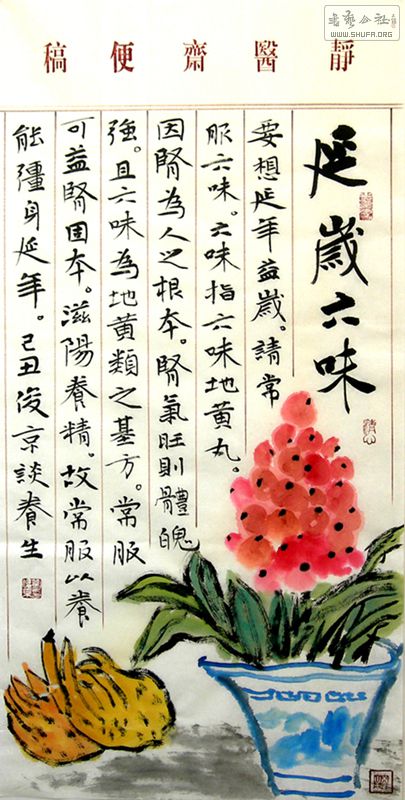 書藝公社
WWW.SHUFA.ORG
靜醫齋便稿
延歲六味
要想延年益歲。請常
服六味。六味指六味地黃丸。
因腎為人之根本。腎氣旺則體魄
強。且六味為地黃類之基方。常服
可益腎固本。滋陽養精。故常服以養
能彊身延年。己丑俊京談養生